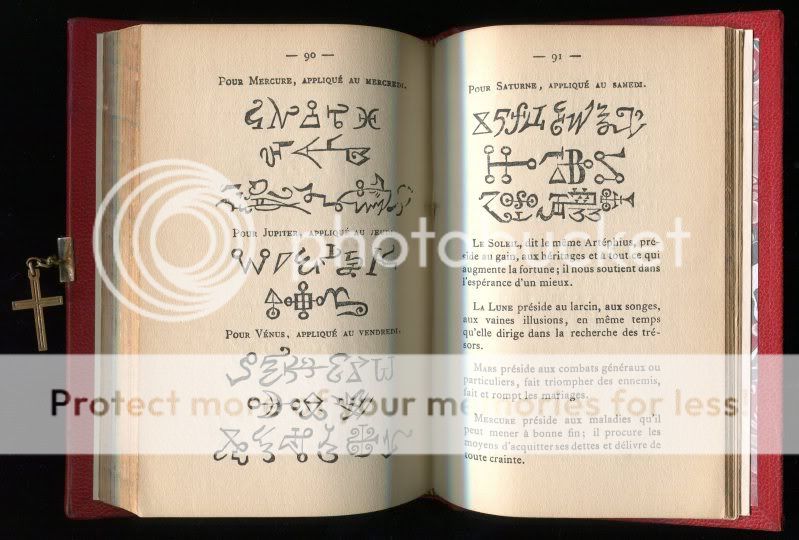 — 90 —
Pour Mercure, appliqué au mercredi.
Pour Jupiter, appliqué au jeudi.
Pour Vénus, appliqué au vendredi.
— 91 —
Pour Saturne, appliqué au samedi.
Le Soleil, dit le même Artéphius, pré-
side au gain, aux héritages et à tout ce qui
augmente la fortune ; il nous soutient dans
l'espérance d'un mieux.
La Lune préside au larcin, aux songes,
aux vaines illusions, en même temps
qu'elle dirige dans la recherche des tré-
sors.
Mars préside aux combats généraux ou
particuliers, fait triompher des ennemis,
fait et rompt les mariages.
Mercure préside aux maladies qu'il
peut mener à bonne fin ; il procure les
moyens d'acquitter ses dettes et délivre de
toute crainte.
photobucket
Protect more of your memories for less!